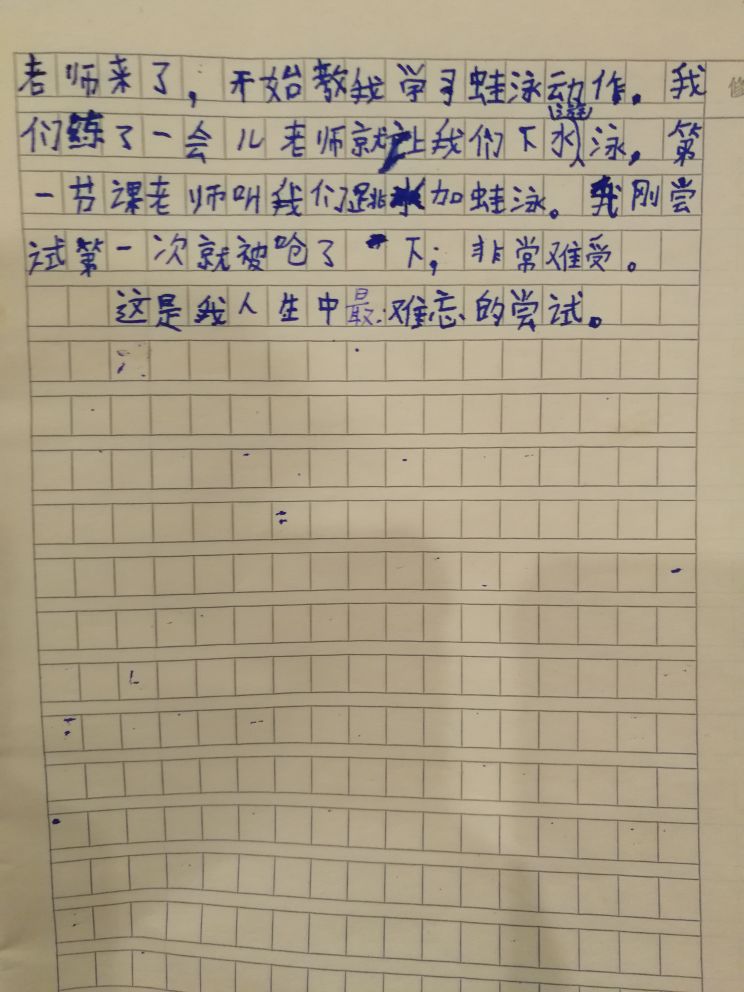 老师来了，开始教我学习蛙泳动作。我
们练了一会儿老师就让我们下水游泳，第
一节课老师叫我们跳水加蛙泳。我刚尝
试第一次就被呛了一下；非常难受。
这是我人生中最难忘的尝试。